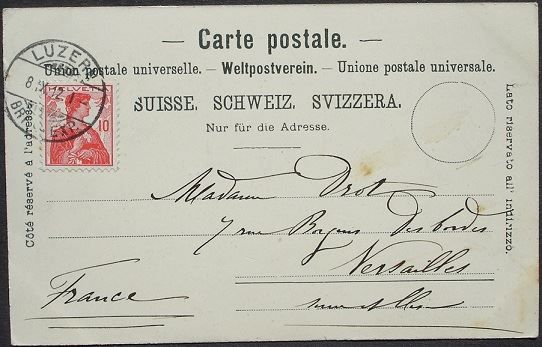 — Carte postale. —
Union postale universelle. — Weltpostverein. — Unione postale universale.
SUISSE. SCHWEIZ. SVIZZERA.
Nur für die Adresse.
Côté réservé à l'adresse.
Lato riservato all' indirizzo.
LUZERN
HELVETIA
10
Madame Drot
7 rue Borgnis Desbordes
Versailles
France